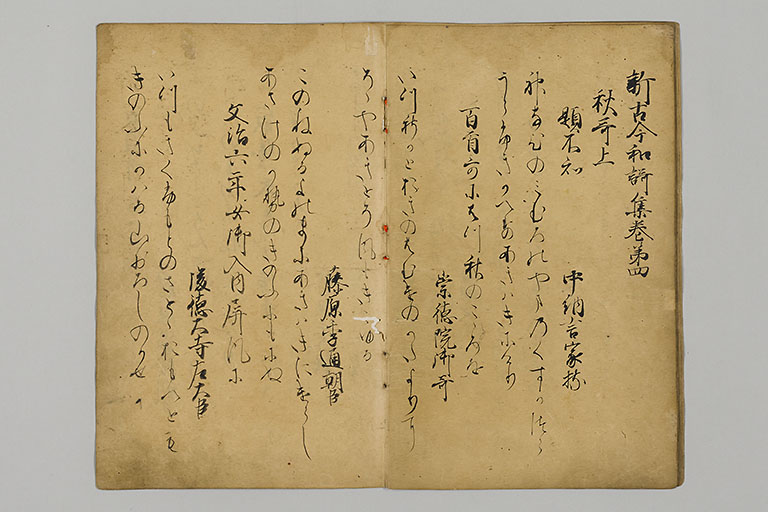 新古今和謌集巻第四
秋哥上
題不知　中納言家持
神なひのみむろのやまのくすかつら
うらふきかへすあきはきにけり
百首哥にはつ秋のこゝろを
崇徳院御哥
いつしかとおきのはむけのかたよりに
そゝやあきとそ風もきこゆる
藤原季通朝臣
このねぬるよのまにあきはきにけらし
あさけのかせのきのふにもにぬ
文治六年女御入内屏風に
後徳大寺左大臣
いつもきくふもとのさとゝおもへとも
きのふにかはる山おろしのかせ